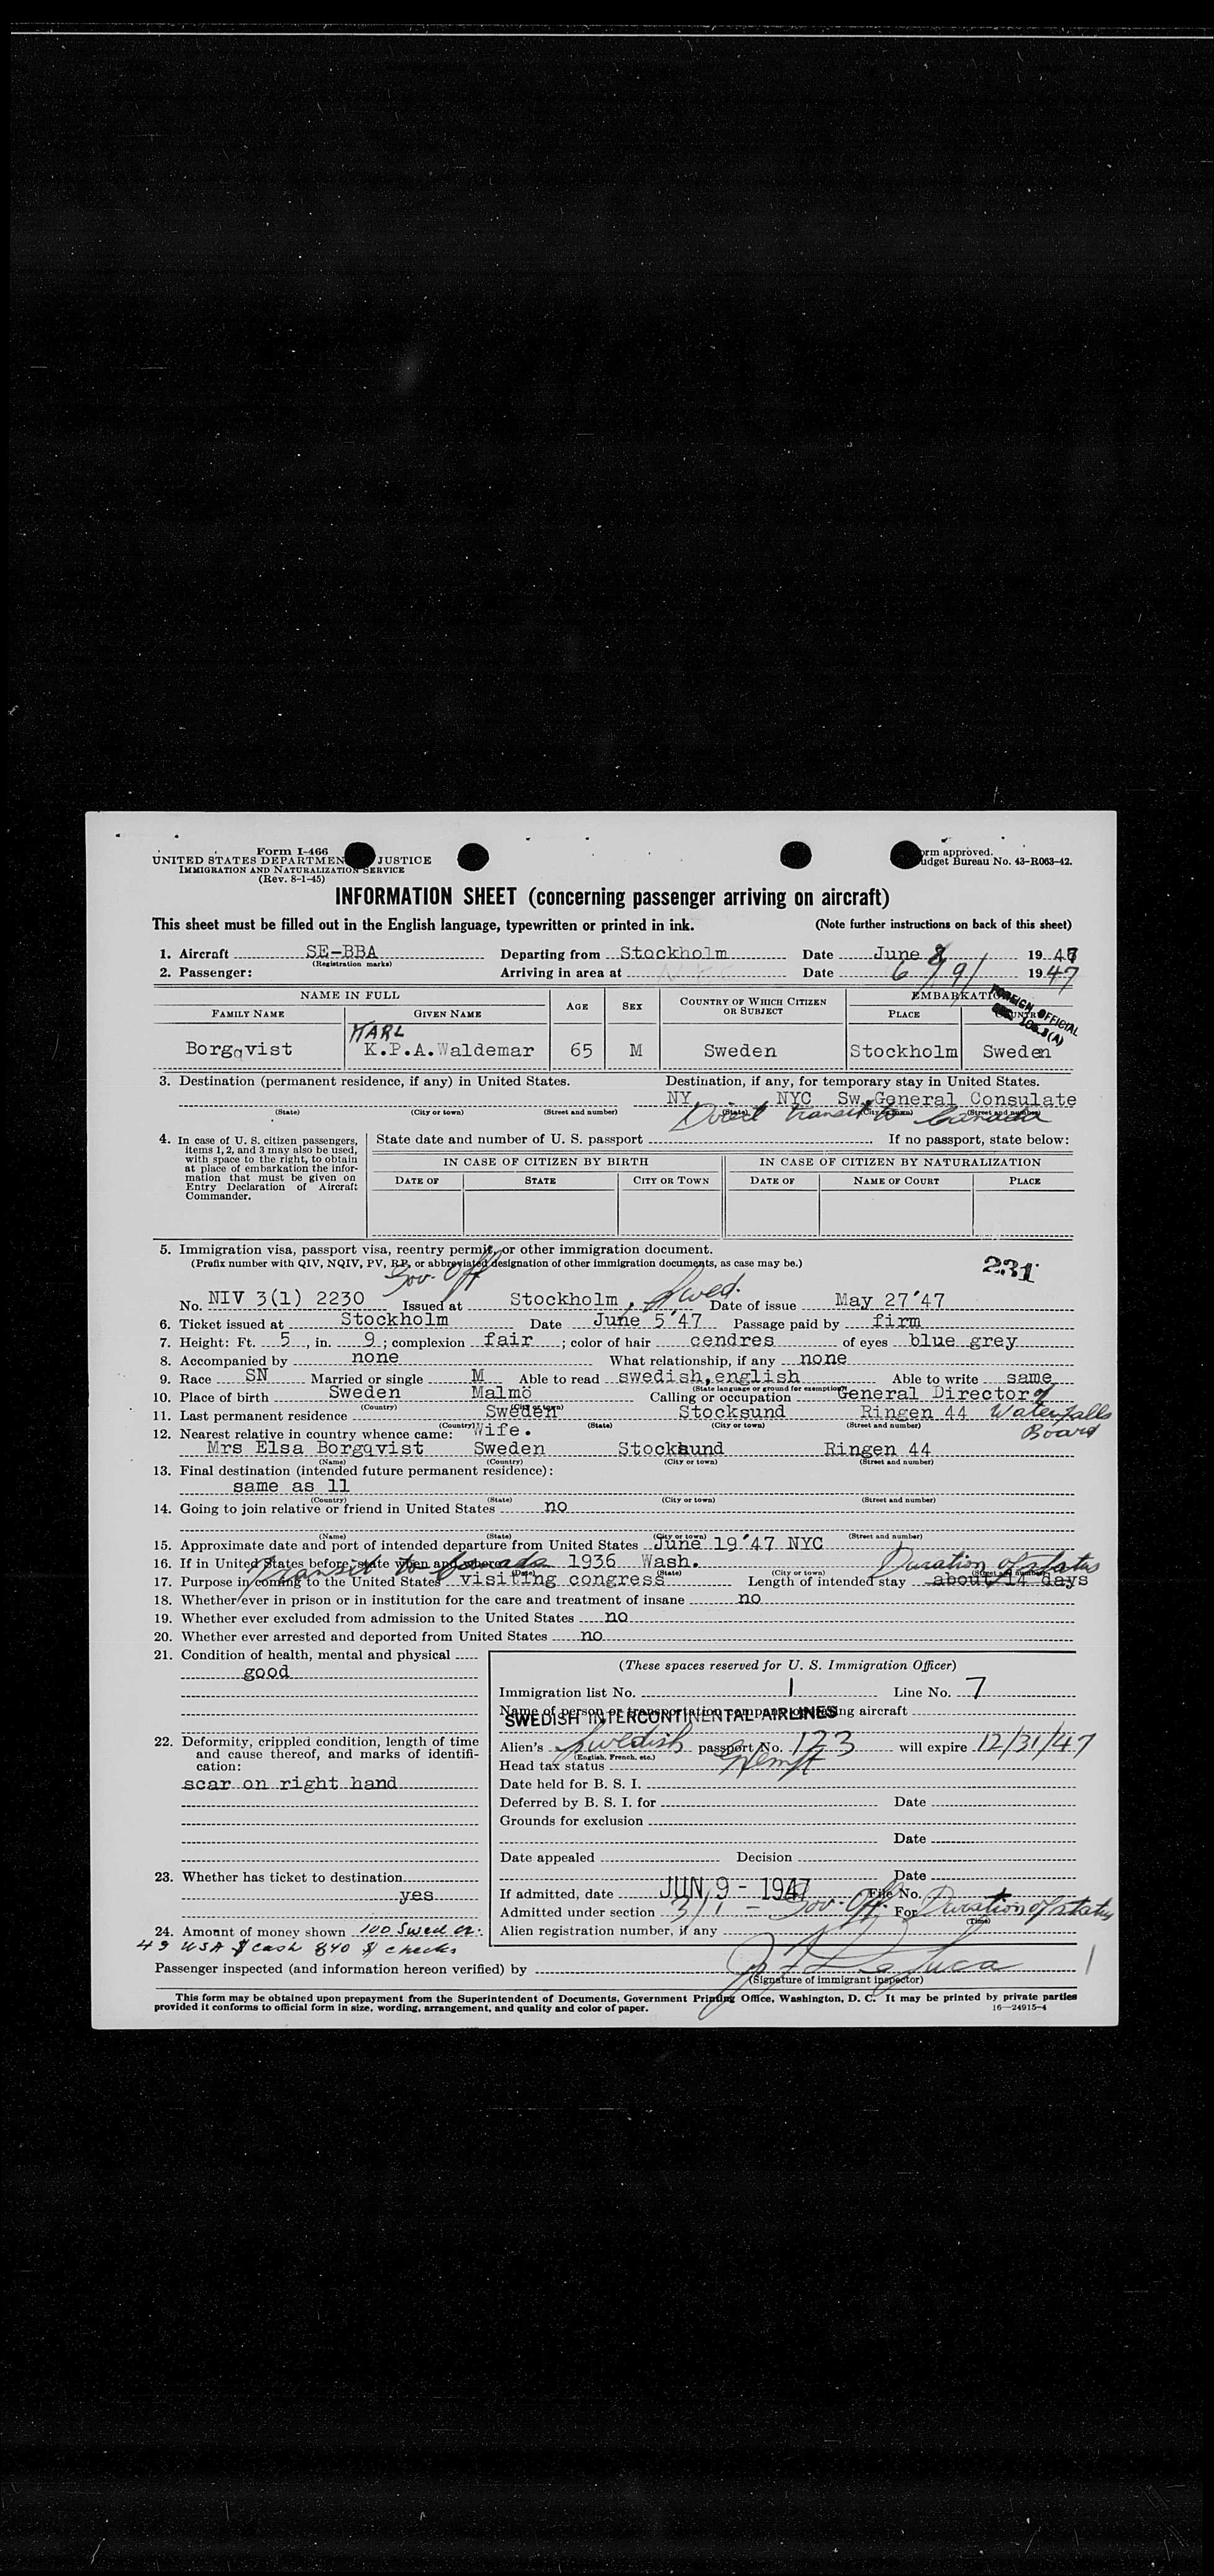 Form I-466
UNITED STATES DEPARTMEN JUSTICE
IMMIGRATION AND NATURALIZATION SERVICE
(Rev. 8-1-45)
orm approved.
udget Bureau No. 43-R063-42.
INFORMATION SHEET (concerning passenger arriving on aircraft)
This sheet must be filled out in the English language, typewritten or printed in ink. (Note further instructions on back of this sheet)
1. Aircraft SE-BBA Departing from Stockholm Date June 8 1947
(Registration marks)
2. Passenger: Arriving in area at Date 6/9/ 1947
NAME IN FULL AGE SEX COUNTRY OF WHICH CITIZEN OR SUBJECT EMBARKATI
FAMILY NAME GIVEN NAME PLACE COUNTRY
FOREIGN OFFICIAL
SEC. 106.3(A)
KARL
Borgqvist K.P.A.Waldemar 65 M Sweden Stockholm Sweden
3. Destination (permanent residence, if any) in United States. Destination, if any, for temporary stay in United States.
NY NYC Sw.General Consulate
(State) (City or town) (Street and number) (State) (City or town) (Street and number)
Direct transit to Canada
4. In case of U. S. citizen passengers, items 1, 2, and 3 may also be used, with space to the right, to obtain at place of embarkation the information that must be given on Entry Declaration of Aircraft Commander.
State date and number of U. S. passport If no passport, state below:
IN CASE OF CITIZEN BY BIRTH IN CASE OF CITIZEN BY NATURALIZATION
DATE OF STATE CITY OR TOWN DATE OF NAME OF COURT PLACE
5. Immigration visa, passport visa, reentry permit, or other immigration document.
(Prefix number with QIV, NQIV, PV, RP, or abbreviated designation of other immigration documents, as case may be.)
231
Gov. Off
No. NIV 3(1) 2230 Issued at Stockholm, Swed. Date of issue May 27'47
6. Ticket issued at Stockholm Date June 5'47 Passage paid by firm
7. Height: Ft. 5, in. 9; complexion fair; color of hair cendres of eyes blue grey
8. Accompanied by none What relationship, if any none
9. Race SN Married or single M Able to read swedish,english Able to write same
(State language or ground for exemption)
10. Place of birth Sweden Malmö Calling or occupation General Director of
(Country) (City or town)
Waterfalls Board
11. Last permanent residence Sweden Stocksund Ringen 44
(Country) (State) (City or town) (Street and number)
12. Nearest relative in country whence came: Wife.
Mrs Elsa Borgqvist Sweden Stocksund Ringen 44
(Name) (Country) (City or town) (Street and number)
13. Final destination (intended future permanent residence):
same as 11
(Country) (State) (City or town) (Street and number)
14. Going to join relative or friend in United States no
(Name) (State) (City or town) (Street and number)
15. Approximate date and port of intended departure from United States June 19'47 NYC
16. If in United States before, state when and where 1936 Wash.
(Date) (State) (City or town) (Street and number)
transit to Canada Duration of status
17. Purpose in coming to the United States visiting congress Length of intended stay about 14 days
18. Whether ever in prison or in institution for the care and treatment of insane no
19. Whether ever excluded from admission to the United States no
20. Whether ever arrested and deported from United States no
21. Condition of health, mental and physical
good
22. Deformity, crippled condition, length of time and cause thereof, and marks of identification:
scar on right hand
23. Whether has ticket to destination
yes
24. Amount of money shown 100 Swed cr.
49 USA $ cash 840 $ checks
(These spaces reserved for U. S. Immigration Officer)
Immigration list No. 1 Line No. 7
Name of person or transportation company operating aircraft
SWEDISH INTERCONTINENTAL AIRLINES
Alien's Swedish passport No. 123 will expire 12/31/47
(English, French, etc.)
Head tax status Exempt
Date held for B. S. I.
Deferred by B. S. I. for Date
Grounds for exclusion
Date
Date appealed Decision
Date
If admitted, date JUN 9 - 1947 File No.
Admitted under section 3/1 - Gov. Off. For Duration of status
(Time)
Alien registration number, if any
Passenger inspected (and information hereon verified) by
(Signature of immigrant inspector)
This form may be obtained upon prepayment from the Superintendent of Documents, Government Printing Office, Washington, D. C. It may be printed by private parties
provided it conforms to official form in size, wording, arrangement, and quality and color of paper. 16—24915-4